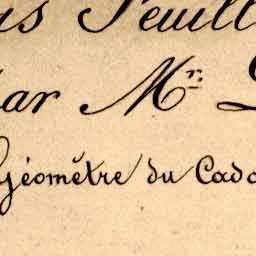 us Feuill
ar Mr.
Géomêtre du Cada